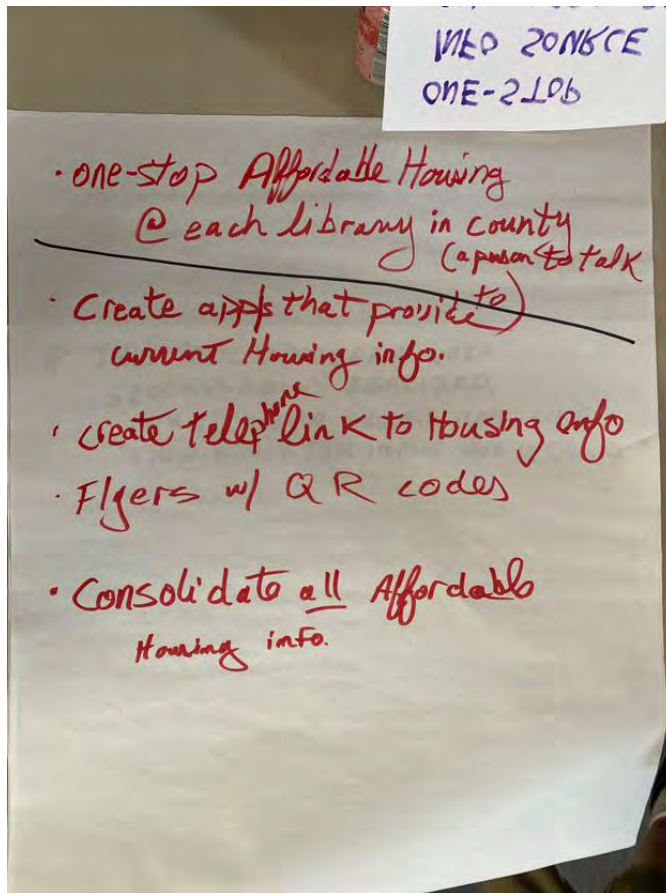 ONE-STOP
INFO SOURCE
• one-stop Affordable Housing
@ each library in county
(a person to talk
to)
• Create apps that provide
current Housing info.
• create telephone link to Housing info
• Flyers w/ QR codes
• Consolidate all Affordable
Housing info.